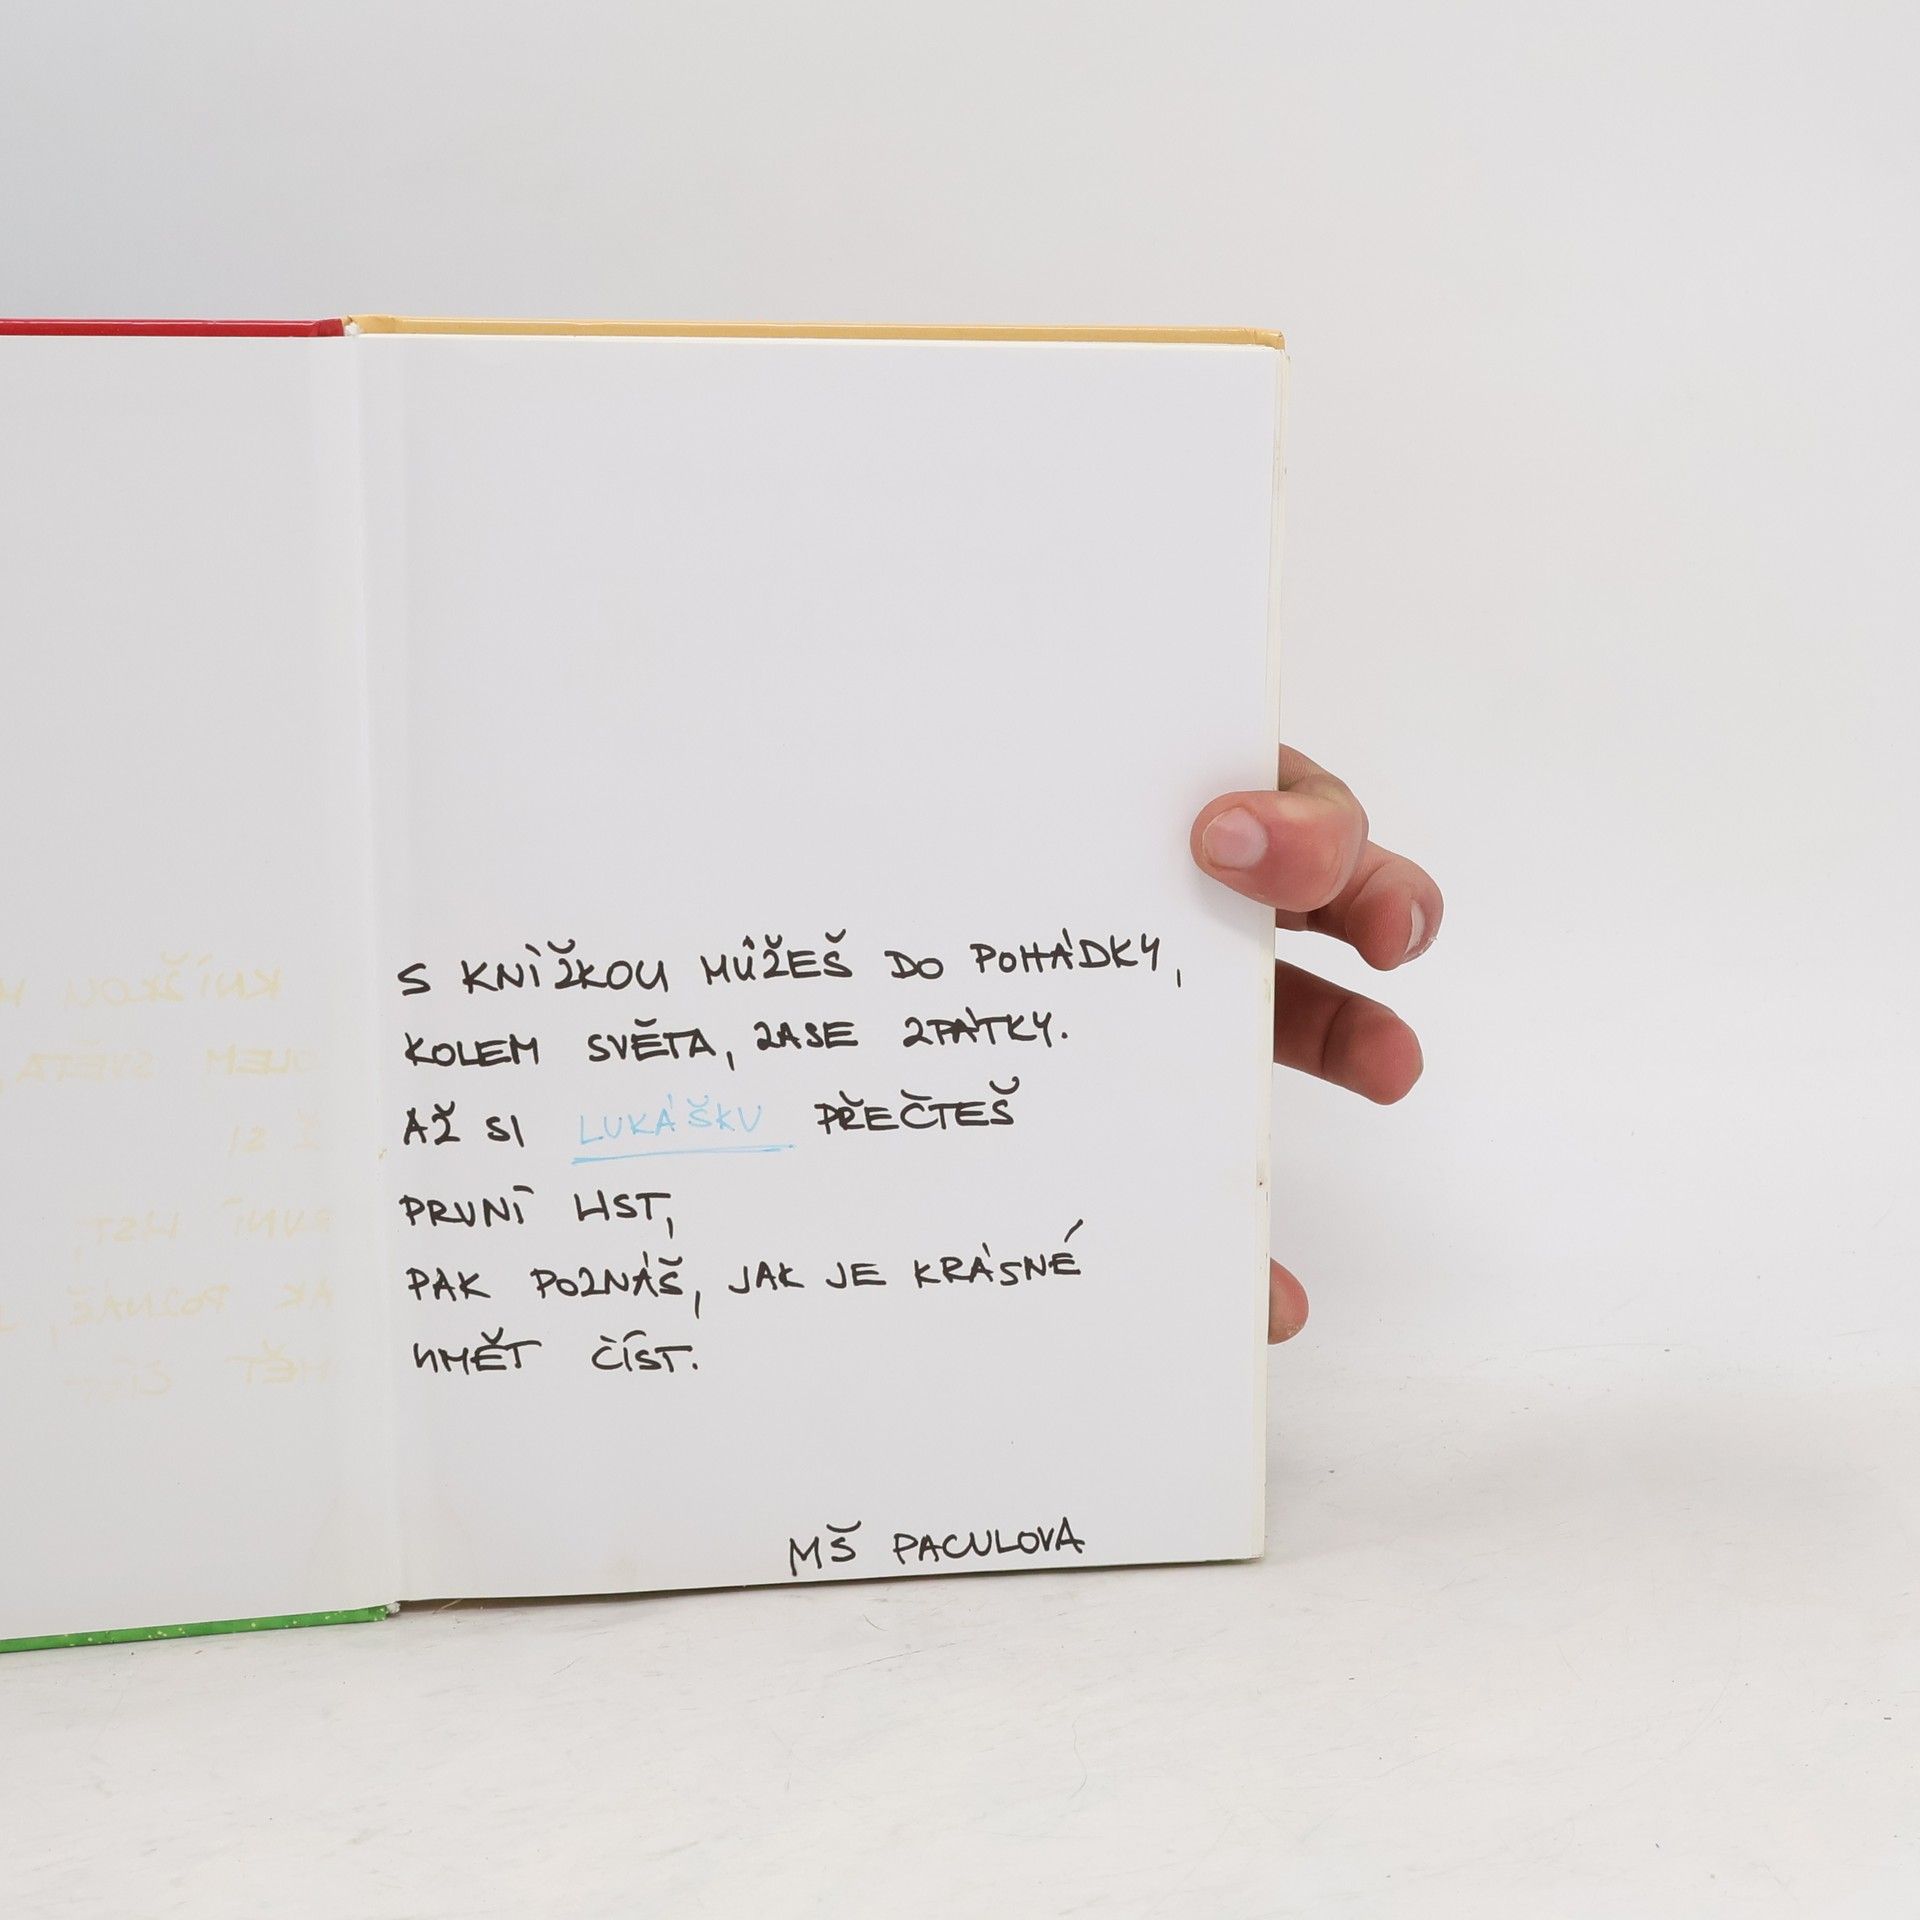 S KNÍŽKOU MŮŽEŠ DO POHÁDKY,
KOLEM SVĚTA, ZASE ZPÁTKY.
AŽ SI LUKÁŠKU PŘEČTEŠ
PRVNÍ LIST,
PAK POZNÁŠ, JAK JE KRÁSNÉ
UMĚT ČÍST.
MŠ PACULOVA